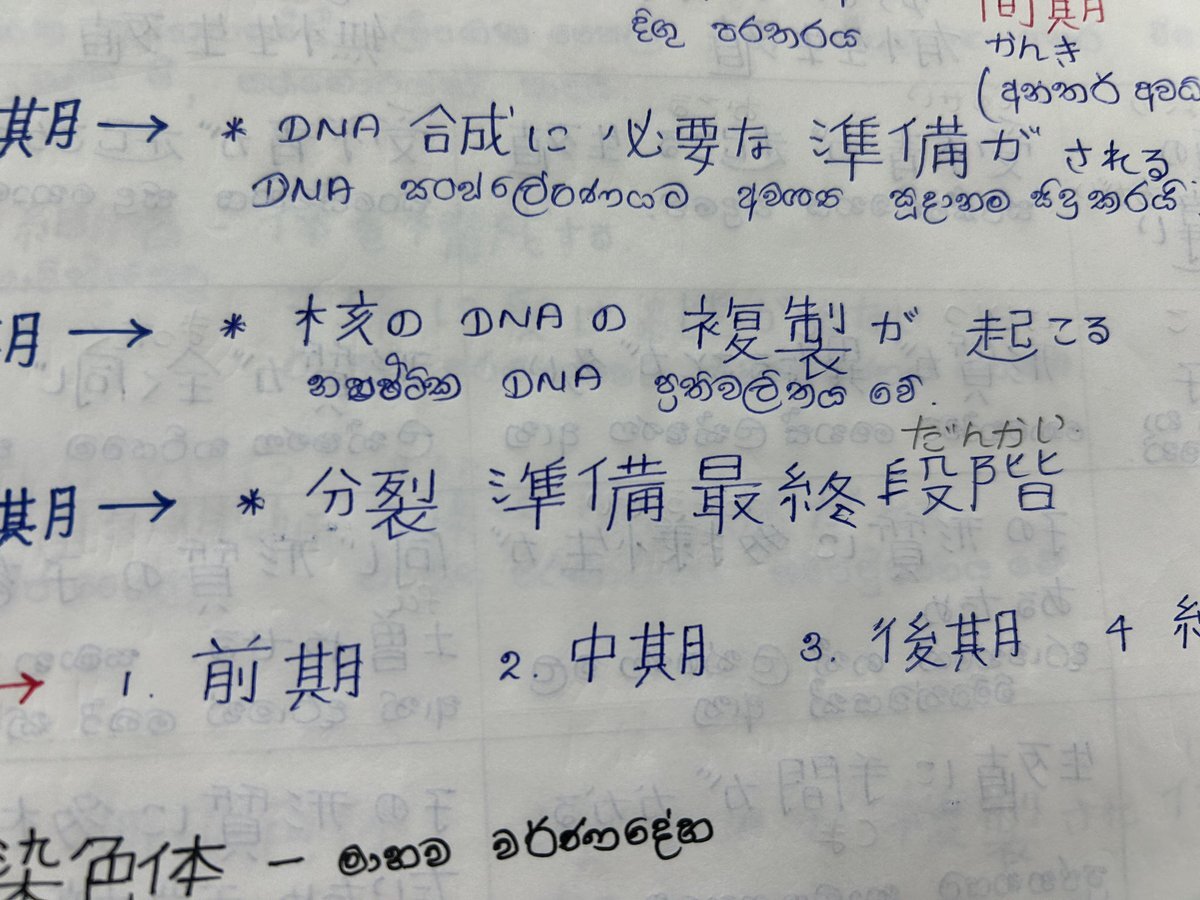 දිගු පරතරය
間期
かんき
(අන්තර් අවධි
期 → * DNA 合成に 必要な 準備が される
DNA සංශ්ලේෂණයට අවශ්‍ය සූදානම සිදු කරයි
期 → * 核の DNA の 複製が 起こる
න්‍යෂ්ටික DNA ප්‍රතිවලිතය වේ.
だんかい
期 → * 分裂 準備 最終 段階
→ 1. 前期 2. 中期 3. 後期 4
染色体 – මානව වර්ණදේහ